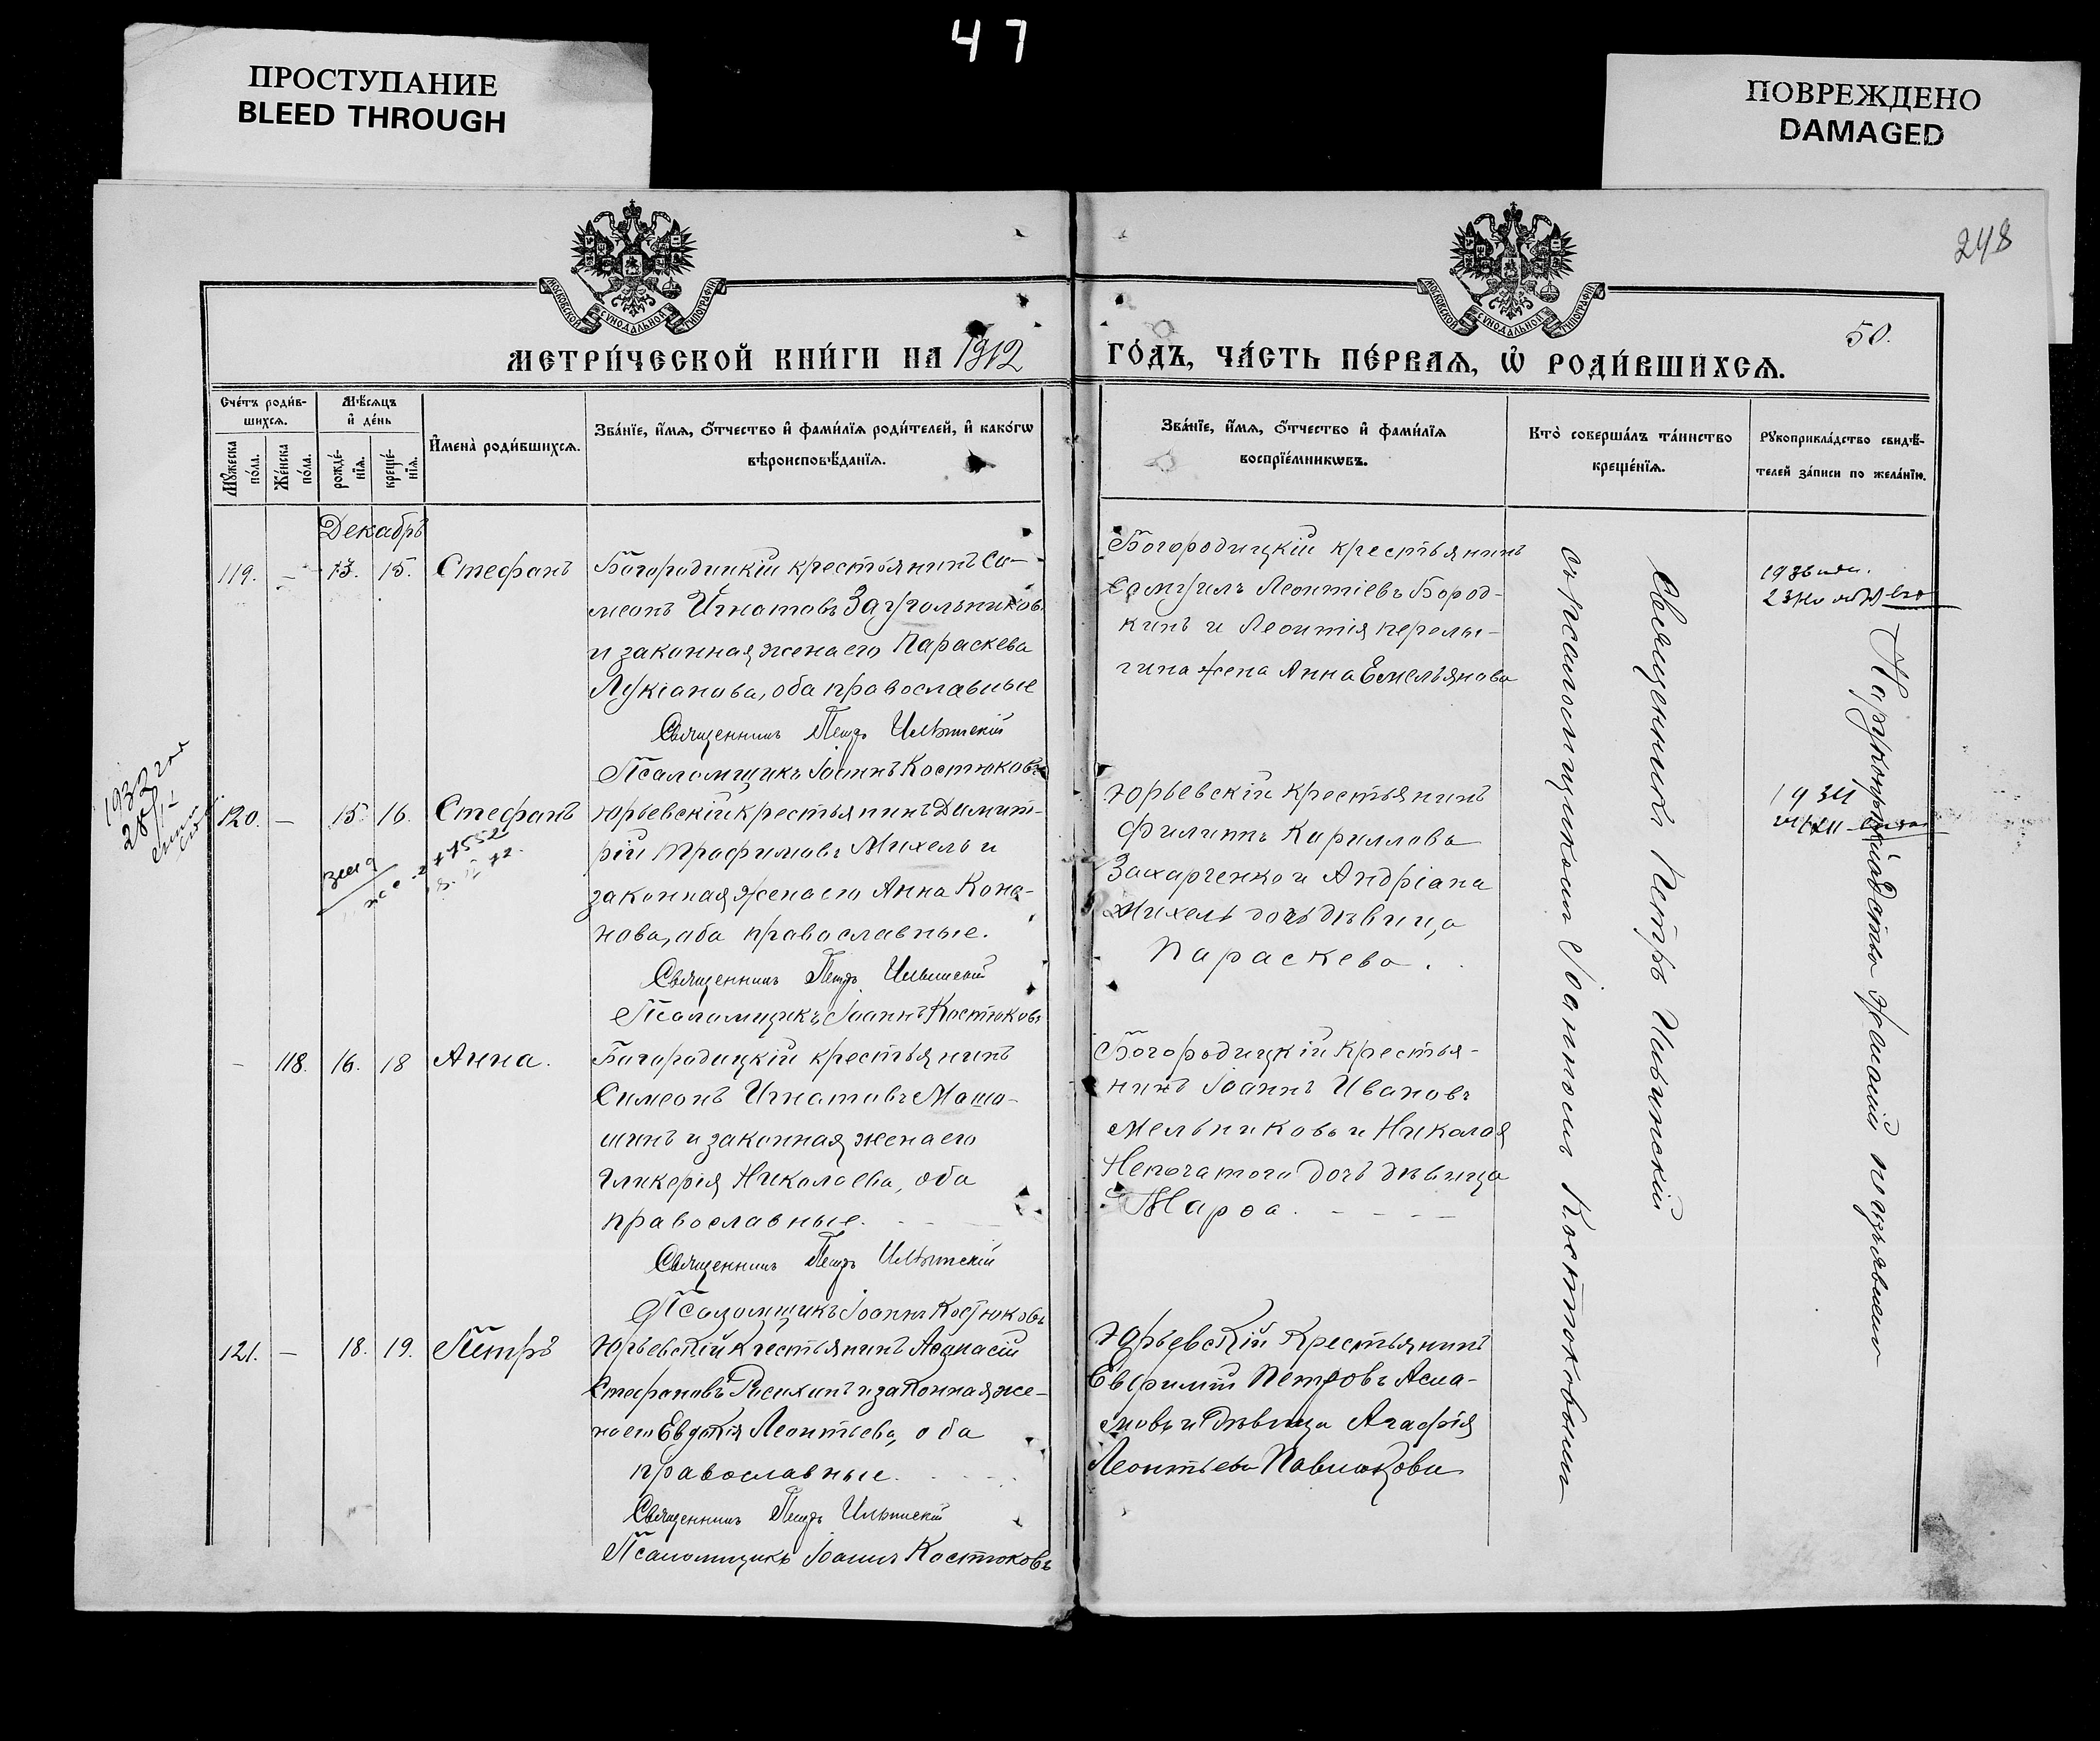 47
ПРОСТУПАНИЕ
BLEED THROUGH
ПОВРЕЖДЕНО
DAMAGED
248
50.
МОСКОВСКОЙ СУНОДАЛЬНОЙ ТИПОГРАФІИ
МОСКОВСКОЙ СУНОДАЛЬНОЙ ТИПОГРАФІИ
МЕТРИ́ЧЕСКОЙ КНИ́ГИ НА 1912
ГО́ДЪ, ЧА́СТЬ ПЕ́РВАЯ, Ѡ҆ РОДИ́ВШИХСЯ.
Сче́тъ роди́в-
шихся.
Мꙋжеска по́ла.
Же́нска по́ла.
Мѣ́сяцъ
и҆ де́нь
рожде́-
нїя.
креще́-
нїя.
И҆мена̀ роди́вшихся.
Зва́нїе, и҆́мя, ѻ҆́тчество и҆ фами́лїя роди́телей, и҆ како́гѡ
вѣроисповѣ́данїя.
Зва́нїе, и҆́мя, ѻ҆́тчество и҆ фами́лїя
воспрїе́мникѡвъ.
Кто̀ соверша́лъ та́инство
креще́нїя.
Рꙋкоприкла́дство свидѣ́-
телей за́писи по жела́нїю.
Декабрь
119. — 13. 15. Стефанъ
Богородицкій крестьянинъ Си-
меонъ Игнатовъ Заугольников
и законная жена его Параскева
Лукіанова, оба православные
Священникъ Петръ Ильинскій
Псаломщикъ Іоаннъ Костюковъ
Богородицкій крестьянинъ
Самуилъ Леонтіевъ Бород-
кинъ и Леонтія Перелы-
гина жена Анна Емельянова
120. — 15 16. Стефанъ
Юрьевскій крестьянинъ Димит-
рій Трофимовъ Михель и
законная жена его Анна Коно-
нова, оба православные.
Священникъ Петръ Ильинскій
Псаломщикъ Іоаннъ Костюковъ
Юрьевскій крестьянинъ
Филиппъ Кириллова
Захарченко и Андріана
Михель дочь дѣвица
Параскева.
1932
1934
— 118. 16. 18 Анна.
Богородицкій крестьянинъ
Симеонъ Игнатовъ Маша-
and и законная жена его
Гликерія Николаева, оба
православные.
Священникъ Петръ Ильинскій
Псаломщикъ Іоаннъ Костюковъ
Богородицкій крестья-
нинъ Іоаннъ Ивановъ
Мельниковъ и Николая
Непочатого дочь дѣвица
Марѳа.
121. — 18. 19. Петръ
Юрьевскій крестьянинъ Аѳанасій
Стефановъ и законная же-
на его Евдокія Леонтьева, оба
православные.
Священникъ Петръ Ильинскій
Псаломщикъ Іоаннъ Костюковъ
Юрьевскій крестьянинъ
Евфимій Петровъ
и дѣвица Агафія
Леонтьева
Священникъ Петръ Ильинскій
съ псаломщикомъ Іоанномъ Костюковымъ
Рукоприкладство желаній не изъявлено